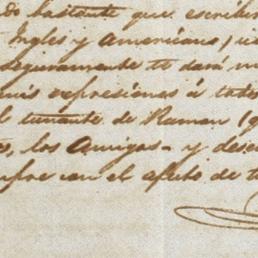 bastante que escribir
Ingles y Americano,
seguramente te dará
mis espresiones á todos
el tunante de Ramon
los Amigos - y
con el afecto de